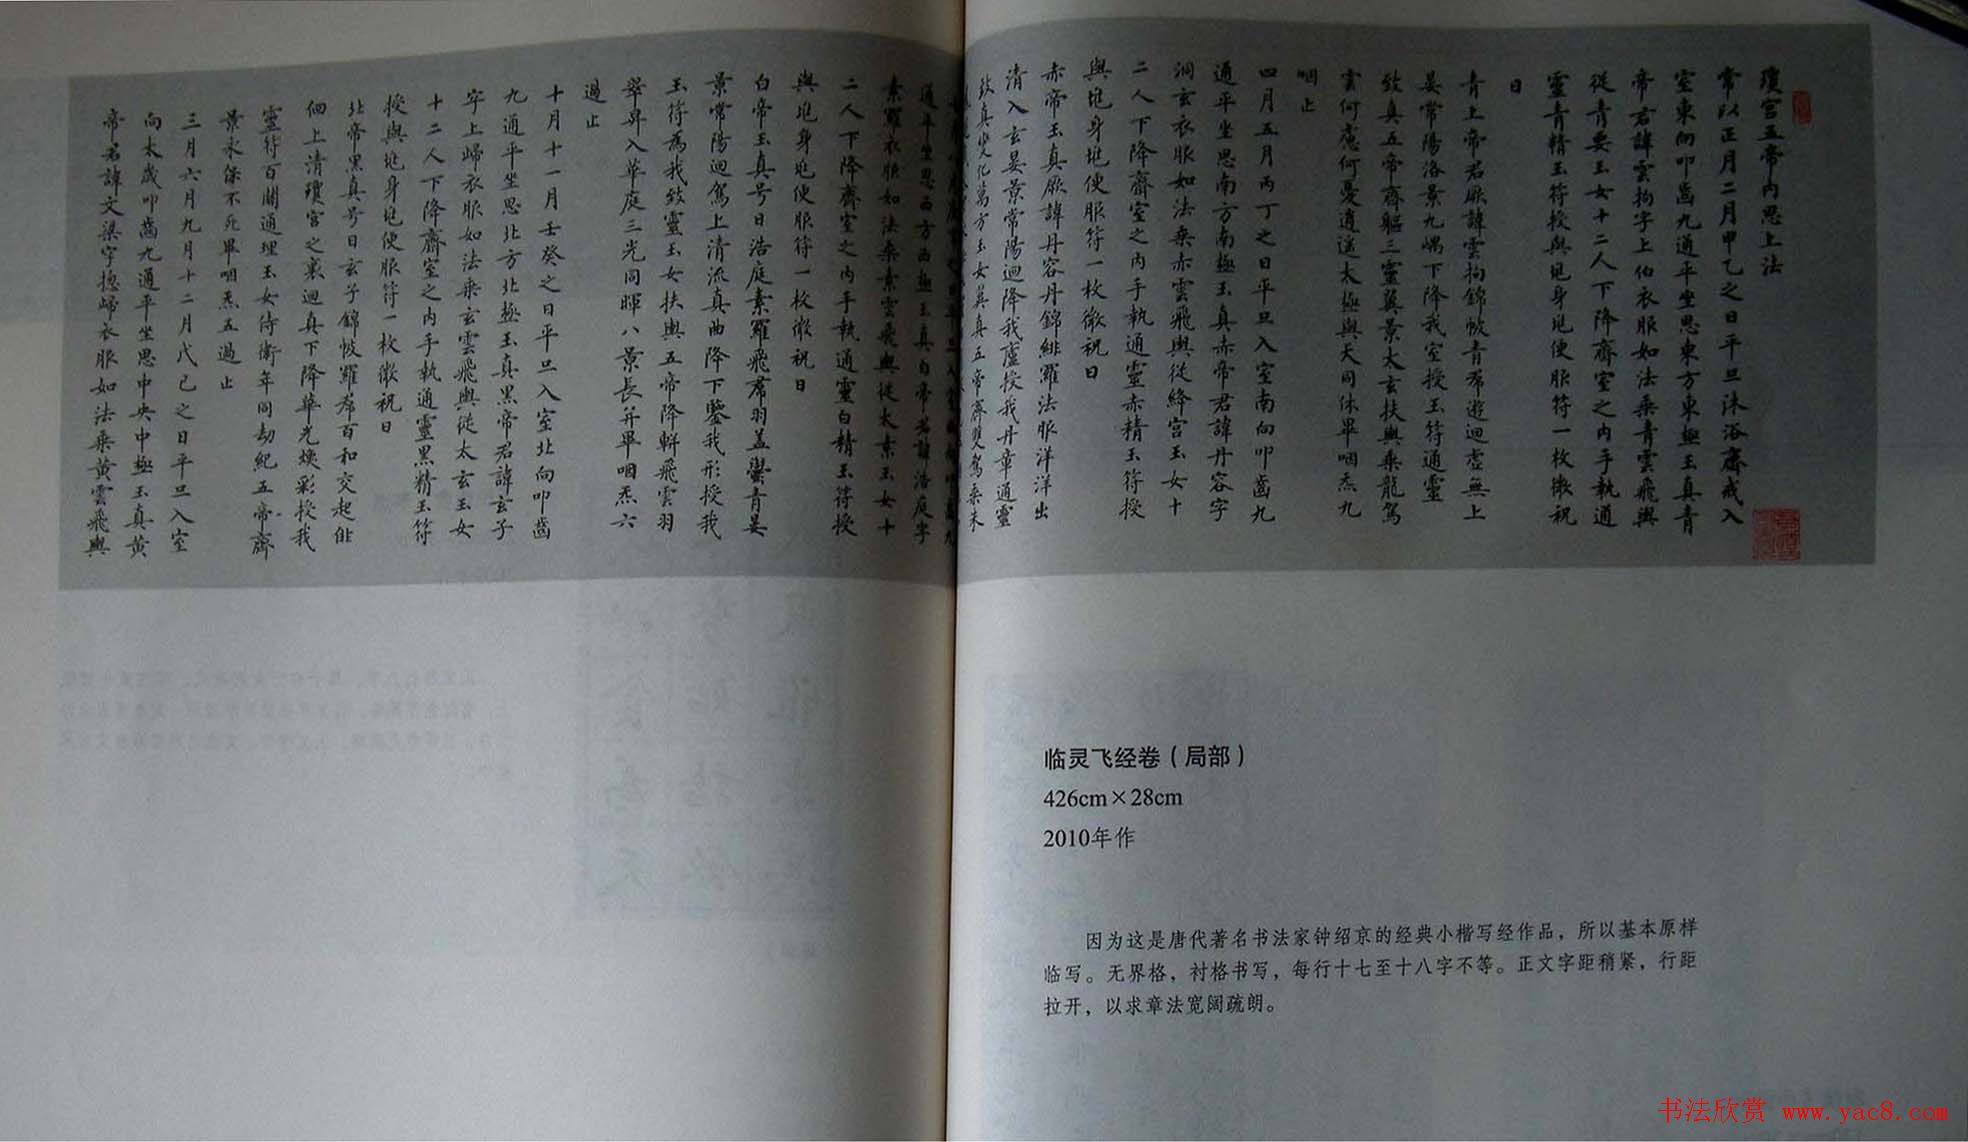 瓊宫五帝内思上法
常以正月二月甲乙之日平旦沐浴齋戒入
室東向叩齒九通平坐思東方東極玉真青
帝君諱雲拘字上伯衣服如法乘青雲飛輿
從青要玉女十二人下降齋室之内手執通
靈青精玉符授與兆身兆便服符一枚微祝
曰
青上帝君厥諱雲拘錦帔青帬遊迴虚無上
晏常陽洛景九嵎下降我室授玉符通靈
致真五帝齊軀三靈翼景太玄扶輿乘龍駕
雲何慮何憂逍遥太極與天同休畢咽炁九
咽止
四月五月丙丁之日平旦入室南向叩齒九
通平坐思南方南極玉真赤帝君諱丹容字
洞玄衣服如法乘赤雲飛輿從絳宫玉女十
二人下降齋室之内手執通靈赤精玉符授
與兆身兆便服符一枚微祝曰
赤帝玉真厥諱丹容丹錦緋羅法服洋洋出
清入玄晏景常陽迴降我廬授我丹章通靈
致真變化萬方玉女翼真五帝齊雙駕乘朱
通平坐思西方西極玉真白帝君諱浩庭字
素羅衣服如法乘素雲飛輿從太素玉女十
二人下降齋室之内手執通靈白精玉符授
與兆身兆便服符一枚微祝曰
白帝玉真号曰浩庭素羅飛帬羽盖鬱青晏
景常陽迴駕上清流真曲降下鑒我形授我
玉符為我致靈玉女扶輿五帝降軿飛雲羽
翠昇入華庭三光同暉八景長并畢咽炁六
過止
十月十一月壬癸之日平旦入室北向叩齒
九通平坐思北方北極玉真黑帝君諱玄子
字上歸衣服如法乘玄雲飛輿從太玄玉女
十二人下降齋室之内手執通靈黑精玉符
授與兆身兆便服符一枚微祝曰
北帝黑真号曰玄子錦帔羅帬百和交起俳
佪上清瓊宫之裏迴真下降華光煥彩授我
靈符百關通理玉女侍衛年同劫紀五帝齊
景永保不死畢咽炁五過止
三月六月九月十二月戊己之日平旦入室
向太歲叩齒九通平坐思中央中極玉真黄
帝君諱文梁字揔歸衣服如法乘黄雲飛輿
临灵飞经卷（局部）
426cm×28cm
2010年作
因为这是唐代著名书法家钟绍京的经典小楷写经作品，所以基本原样
临写。无界格，衬格书写，每行十七至十八字不等。正文字距稍紧，行距
拉开，以求章法宽阔疏朗。
书法欣赏 www.yac8.com